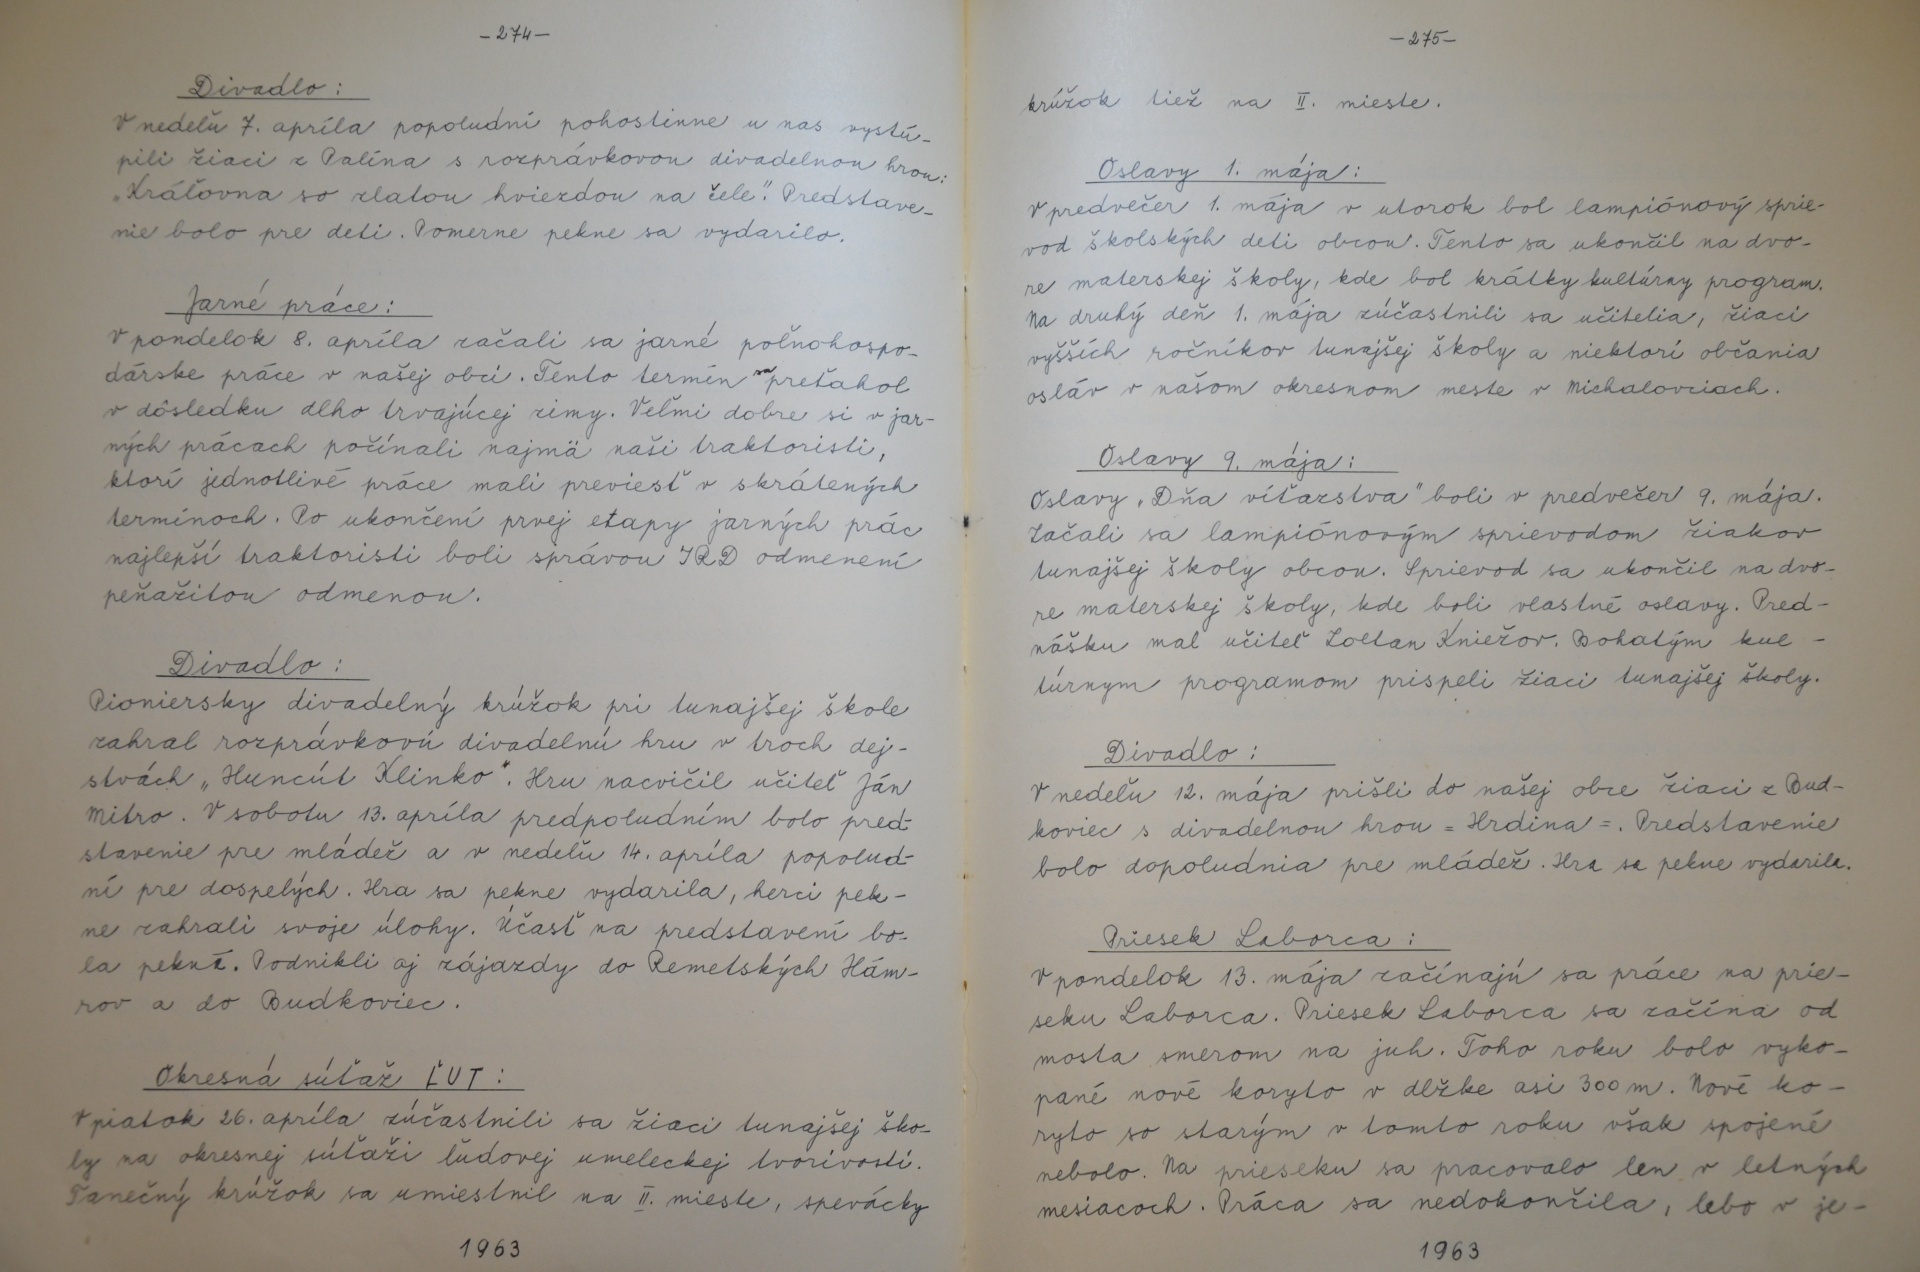 -274-
Divadlo:
V nedeľu 7. apríla popoludní pohostinne u nas vystú-
pili žiaci z Palína s rozprávkovou divadelnou hrou:
"Kráľovna so zlatou hviezdou na čele". Predstave-
nie bolo pre deti. Pomerne pekne sa vydarilo.
Jarné práce:
V pondelok 8. apríla začali sa jarné poľnohospo-
dárske práce v našej obci. Tento termín sa preťahol
v dôsledku dlho trvajúcej zimy. Veľmi dobre si v jar-
ných prácach počínali najmä naši traktoristi,
ktorí jednotlivé práce mali previesť v skrátených
termínoch. Po ukončení prvej etapy jarných prác
najlepší traktoristi boli správou JRD odmenení
peňažitou odmenou.
Divadlo:
Pioniersky divadelný krúžok pri tunajšej škole
zahral rozprávkovú divadelnú hru v troch dej-
stvách „Huncút Klinko". Hru nacvičil učiteľ Ján
Mitro. V sobotu 13. apríla predpoludním bolo pred-
stavenie pre mládež a v nedeľu 14. apríla popolud-
ní pre dospelých. Hra sa pekne vydarila, herci pek-
ne zahrali svoje úlohy. Účasť na predstavení bo-
la pekná. Podnikli aj zájazdy do Remetských Hám-
rov a do Budkoviec.
Okresná súťaž ĽUT:
V piatok 26. apríla zúčastnili sa žiaci tunajšej ško-
ly na okresnej súťaži ľudovej umeleckej tvorivosti.
Tanečný krúžok sa umiestnil na II. mieste, spevácky
1963
-275-
krúžok tiež na II. mieste.
Oslavy 1. mája:
V predvečer 1. mája v utorok bol lampiónový sprie-
vod školských deti obcou. Tento sa ukončil na dvo-
re materskej školy, kde bol krátky kultúrny program.
Na druhý deň 1. mája zúčastnili sa učitelia, žiaci
vyšších ročníkov tunajšej školy a niektorí občania
osláv v našom okresnom meste v Michalovciach.
Oslavy 9. mája:
Oslavy „Dňa víťazstva" boli v predvečer 9. mája.
Začali sa lampiónovým sprievodom žiakov
tunajšej školy obcou. Sprievod sa ukončil na dvo-
re materskej školy, kde boli vlastné oslavy. Pred-
nášku mal učiteľ Zoltan Kniežov. Bohatým kul-
túrnym programom prispeli žiaci tunajšej školy.
Divadlo:
V nedeľu 12. mája prišli do našej obce žiaci z Bud-
koviec s divadelnou hrou = Hrdina =. Predstavenie
bolo dopoludnia pre mládež. Hra sa pekne vydarila.
Priesek Laborca:
V pondelok 13. mája začínajú sa práce na prie-
seku Laborca. Priesek Laborca sa začína od
mosta smerom na juh. Toho roku bolo vyko-
pané nové koryto v dĺžke asi 300 m. Nové ko-
ryto so starým v tomto roku však spojené
nebolo. Na prieseku sa pracovalo len v letných
mesiacoch. Práca sa nedokončila, lebo v je-
1963